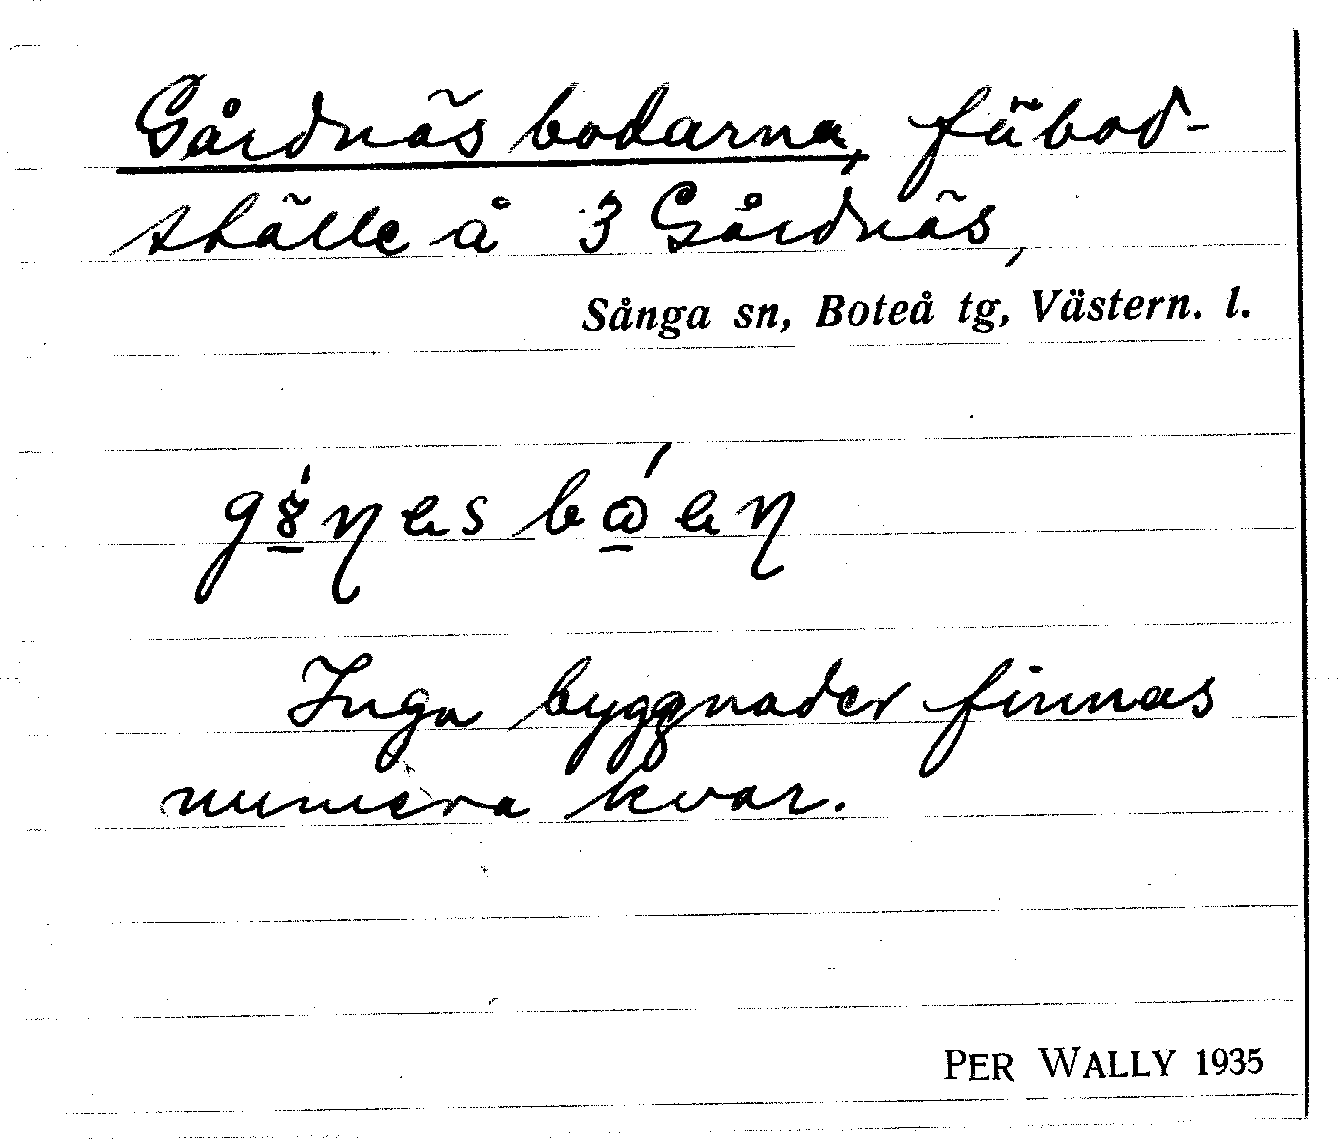 Gårdnäsbodarna, fäbod-
ställe å 3 Gårdnäs,
Sånga sn, Boteå tg, Västern. l.
Inga byggnader finnas
numera kvar.
PER WALLY 1935